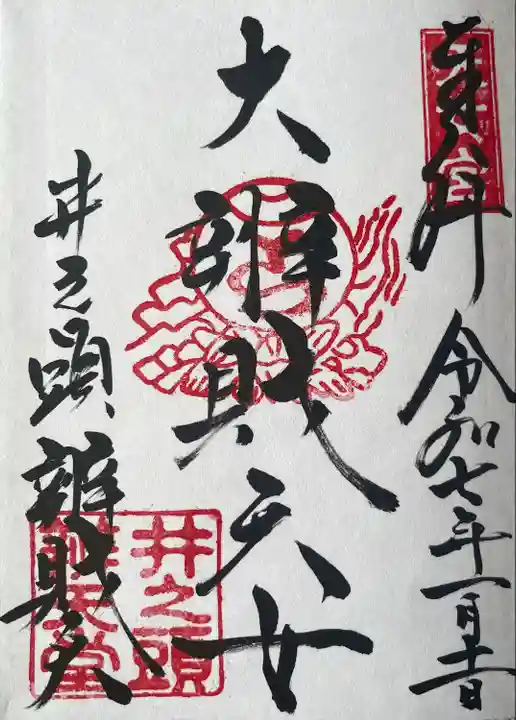 奉拝
令和七年一月
大辨財天女
井之頭辨財天
井之頭
辨天堂